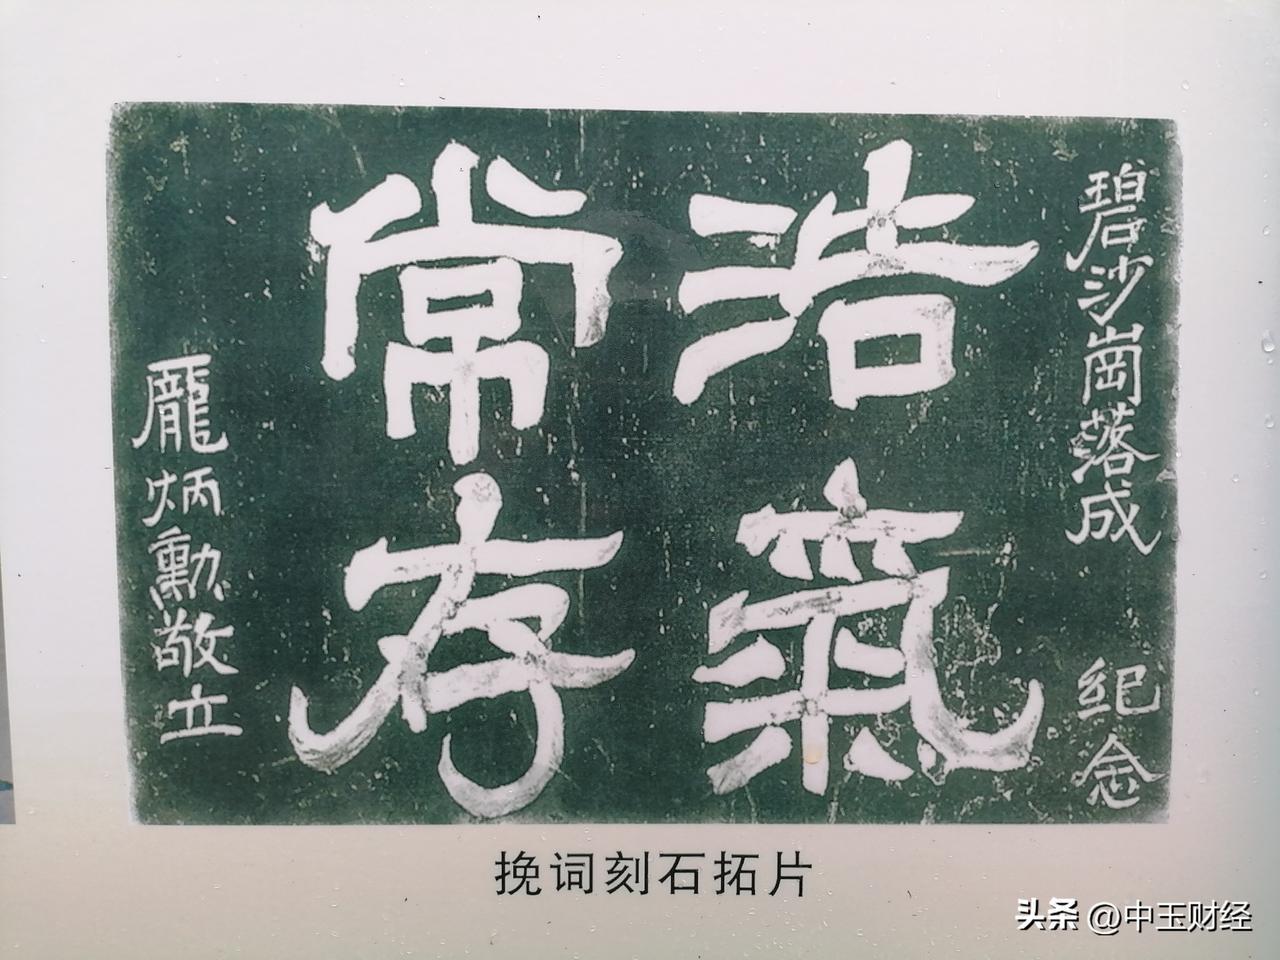 碧沙崗落成 纪念
浩氣
常存
龐炳勳敬立
挽词刻石拓片
头条 @中玉财经